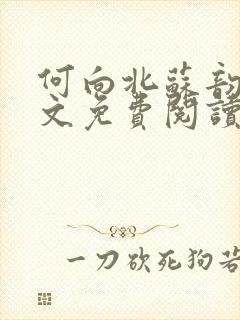 何向北蘇韵
文免費閱讀
一刀砍死狗若